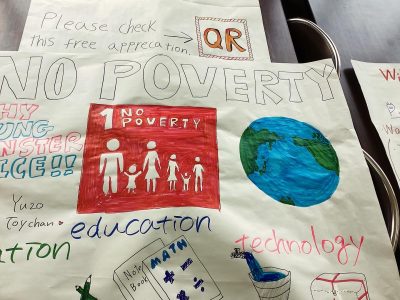 Please check
this free apprecation. → QR
NO POVERTY
HY
UNG
NSTER
ICE!!
1 NO
POVERTY
Yuzo
Toychan
education
ation
technology
Note
Book
MATH
Wi